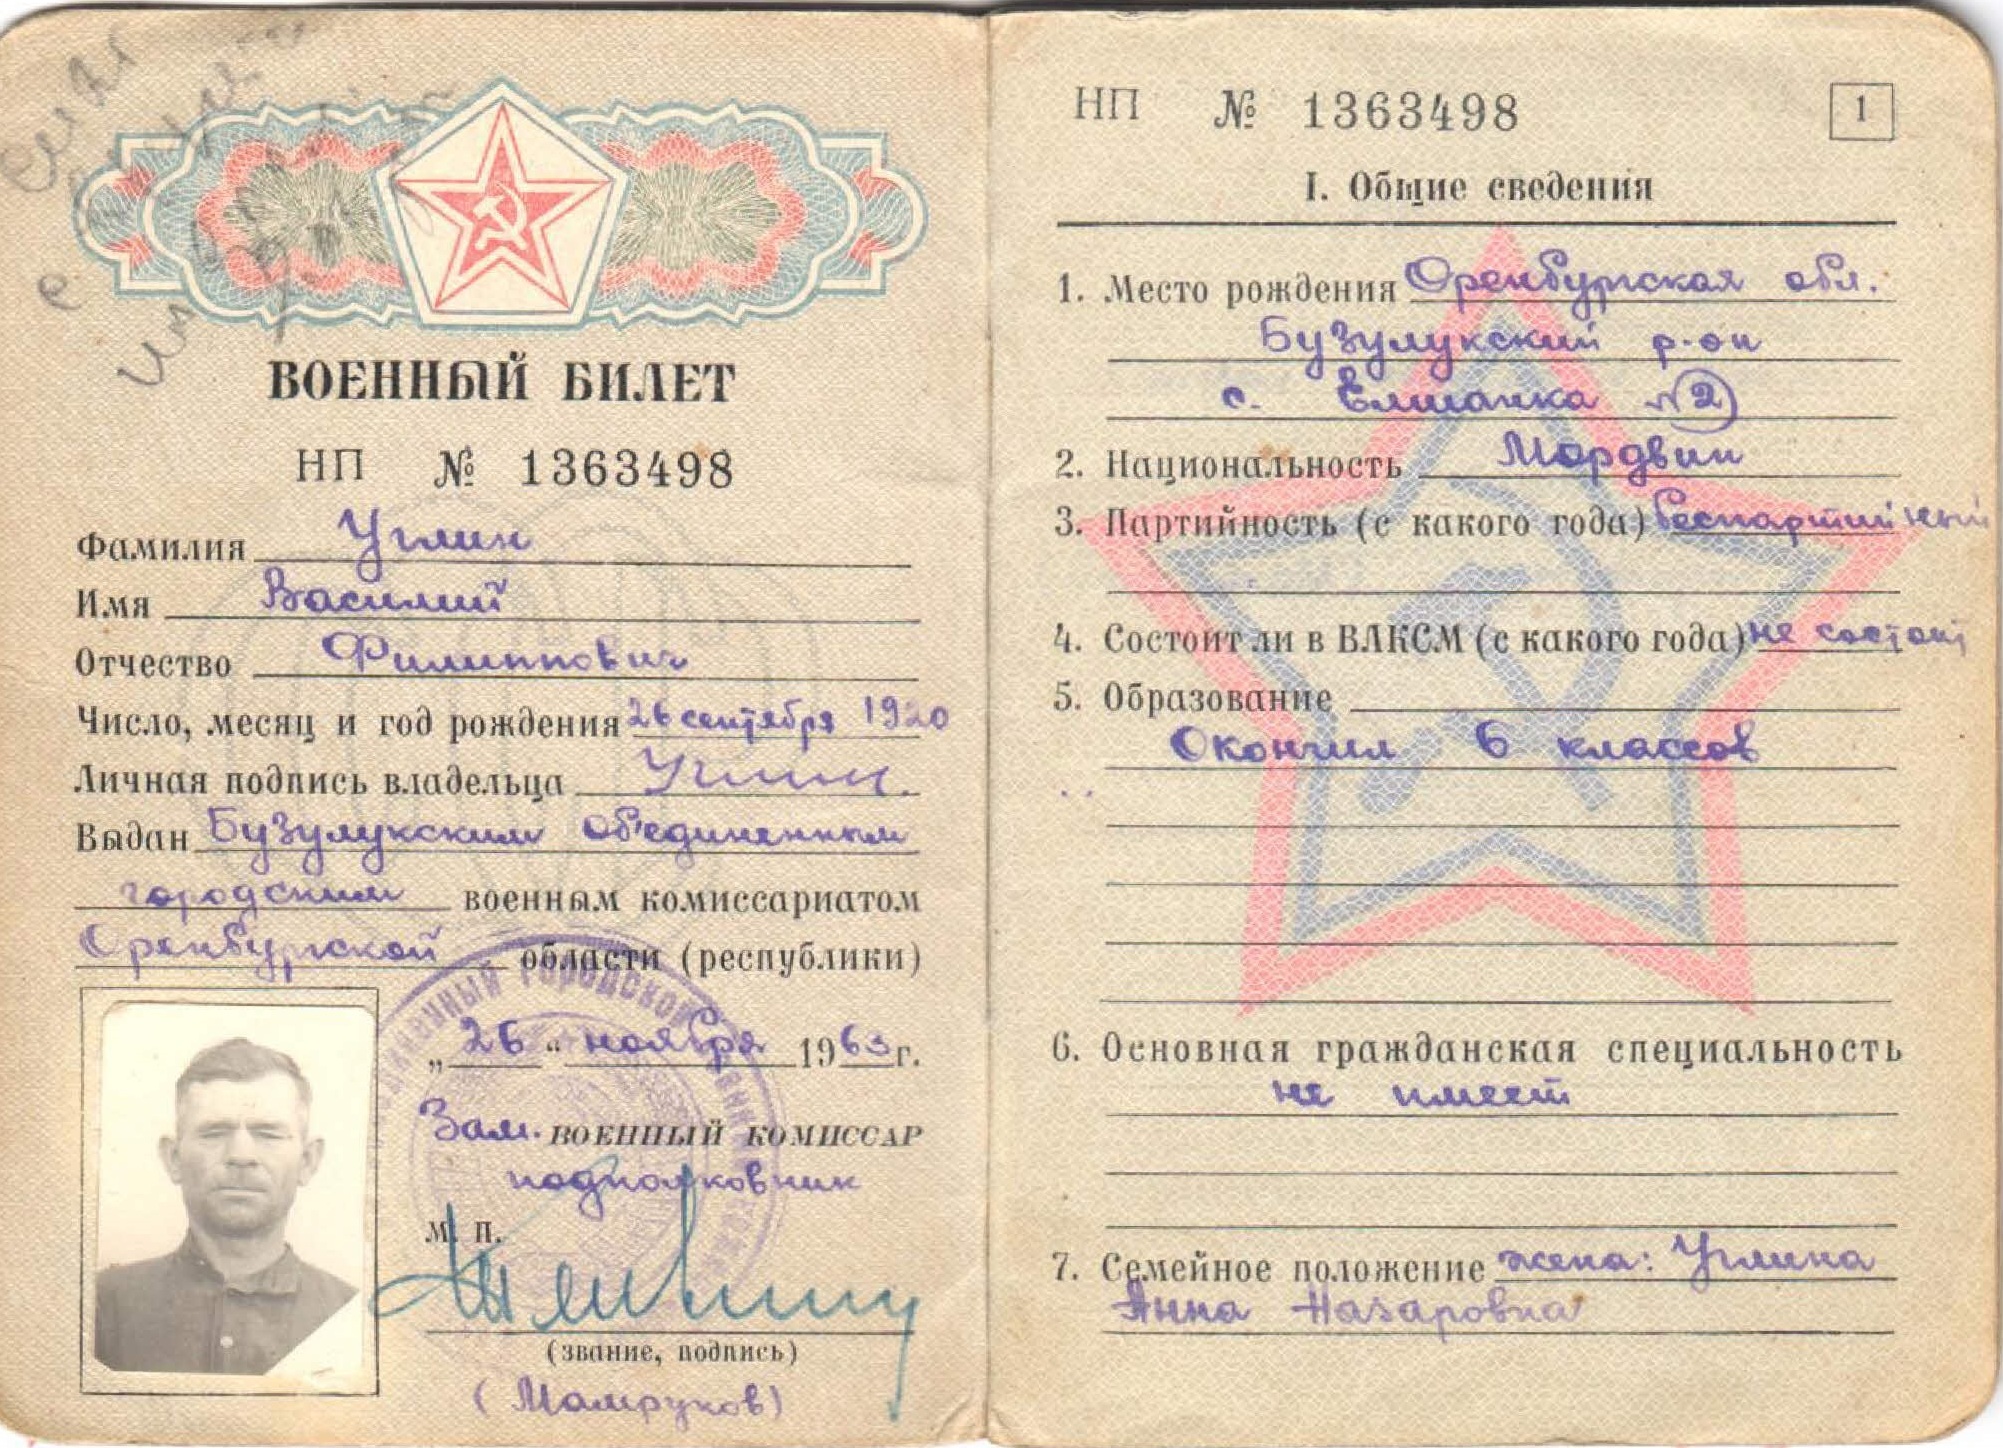 ВОЕННЫЙ БИЛЕТ
НП № 1363498
Фамилия Углин
Имя Василий
Отчество Филиппович
Число, месяц и год рождения 26 сентября 1920
Личная подпись владельца Углин.
Выдан Бузулукским объединенным
городским военным комиссариатом
Оренбургской области (республики)
„26“ ноября 1963 г.
Зам. ВОЕННЫЙ КОМИССАР
подполковник
М. П.
(звание, подпись)
(Мамруков)
НП № 1363498
1
I. Общие сведения
1. Место рождения Оренбургская обл.
Бузулукский р-он
с. Елшанка №2
2. Национальность Мордвин
3. Партийность (с какого года) беспартийный
4. Состоит ли в ВЛКСМ (с какого года) не состоит
5. Образование
Окончил 6 классов
6. Основная гражданская специальность
не имеет
7. Семейное положение жена: Углина
Анна Назаровна